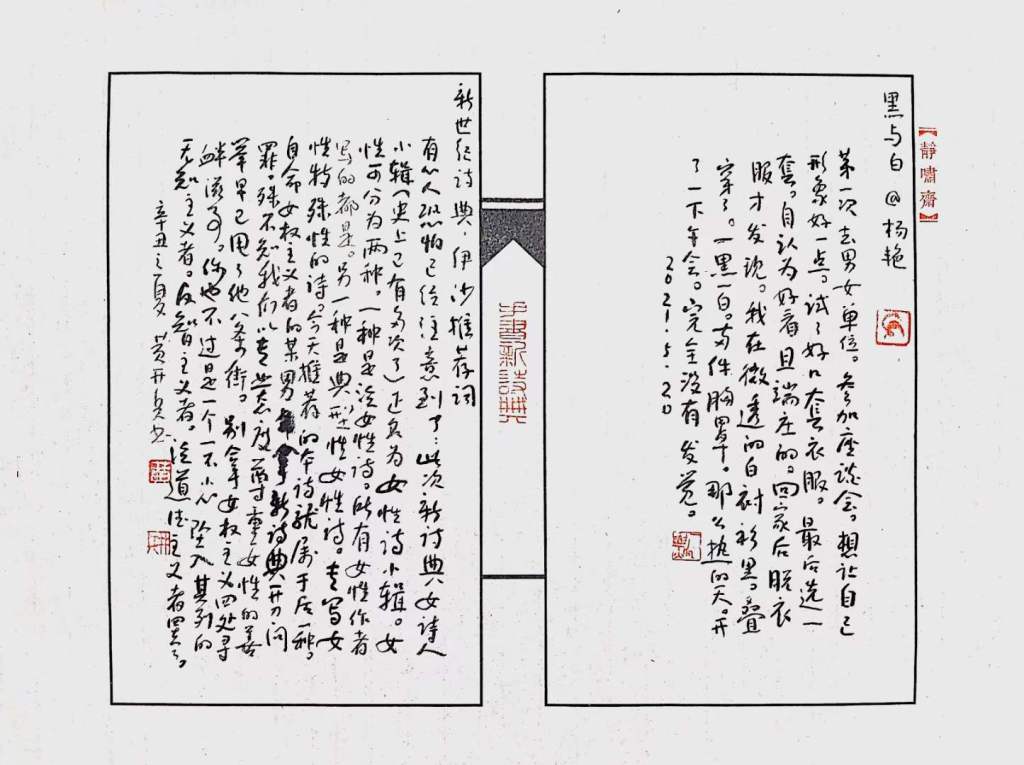 【静嘯齋】
黑与白@杨艳
第一次去男女单位。参加座谈会。想让自己
形象好一点。试了好几套衣服。最后选一
套。自认为好看且端庄的。回家后脱衣
服才发现。我在微透的白衬衫里。叠
穿了。一黑一白。两件胸罩。那么热的天。开
了一下午会。完全没有发觉。
2021.5.20
新世纪诗典·伊沙推荐词
有心人恐怕已经注意到了：此次新诗典女诗人
小辑（史上已有多次了）正名为女性诗小辑。女
性可分为两种。一种是泛女性诗。所有女性作者
写的都是。另一种是典型性女性诗。专写女
性特殊性的诗。今天推荐的本诗就属于后一种。
自命女权主义者的某男拿新诗典开刀问
罪。殊不知我们以专业态度尊重女性的善
举早已甩了他八条街。别拿女权主义四处寻
衅滋事。你也不过是一个一不小心坠入其列的
无知主义者。反智主义者。泛道德主义者罢了。
辛丑之夏 黄开兵书